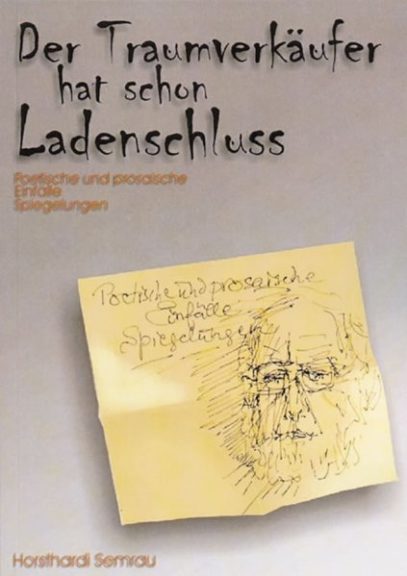 Der Traumverkäufer
hat schon
Ladenschluss
Poetische und prosaische
Einfälle
Spiegelungen
Poetische und prosaische
Einfälle
Spiegelungen
Horsthardi Semrau